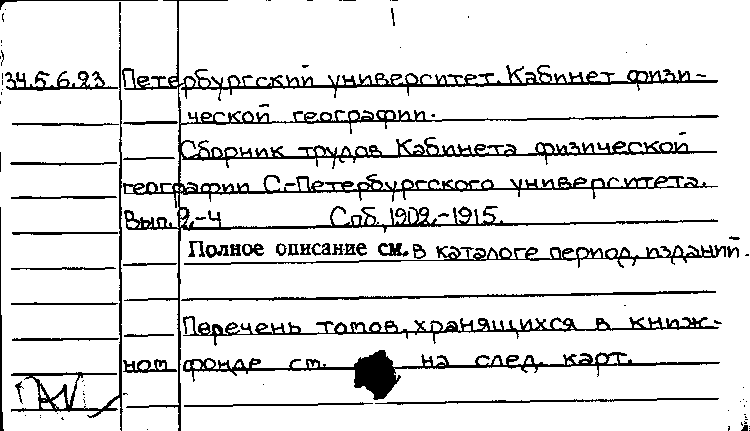 34.5.6.23 Петербургский университет. Кабинет физи-
ческой географии.
Сборник трудов Кабинета физической
географии С.-Петербургского университета.
Вып. 2.-4 Спб, 1902.-1915.
Полное описание см. в каталоге период. изданий.
Перечень томов, хранящихся в книж-
ном фонде см. на след. карт.